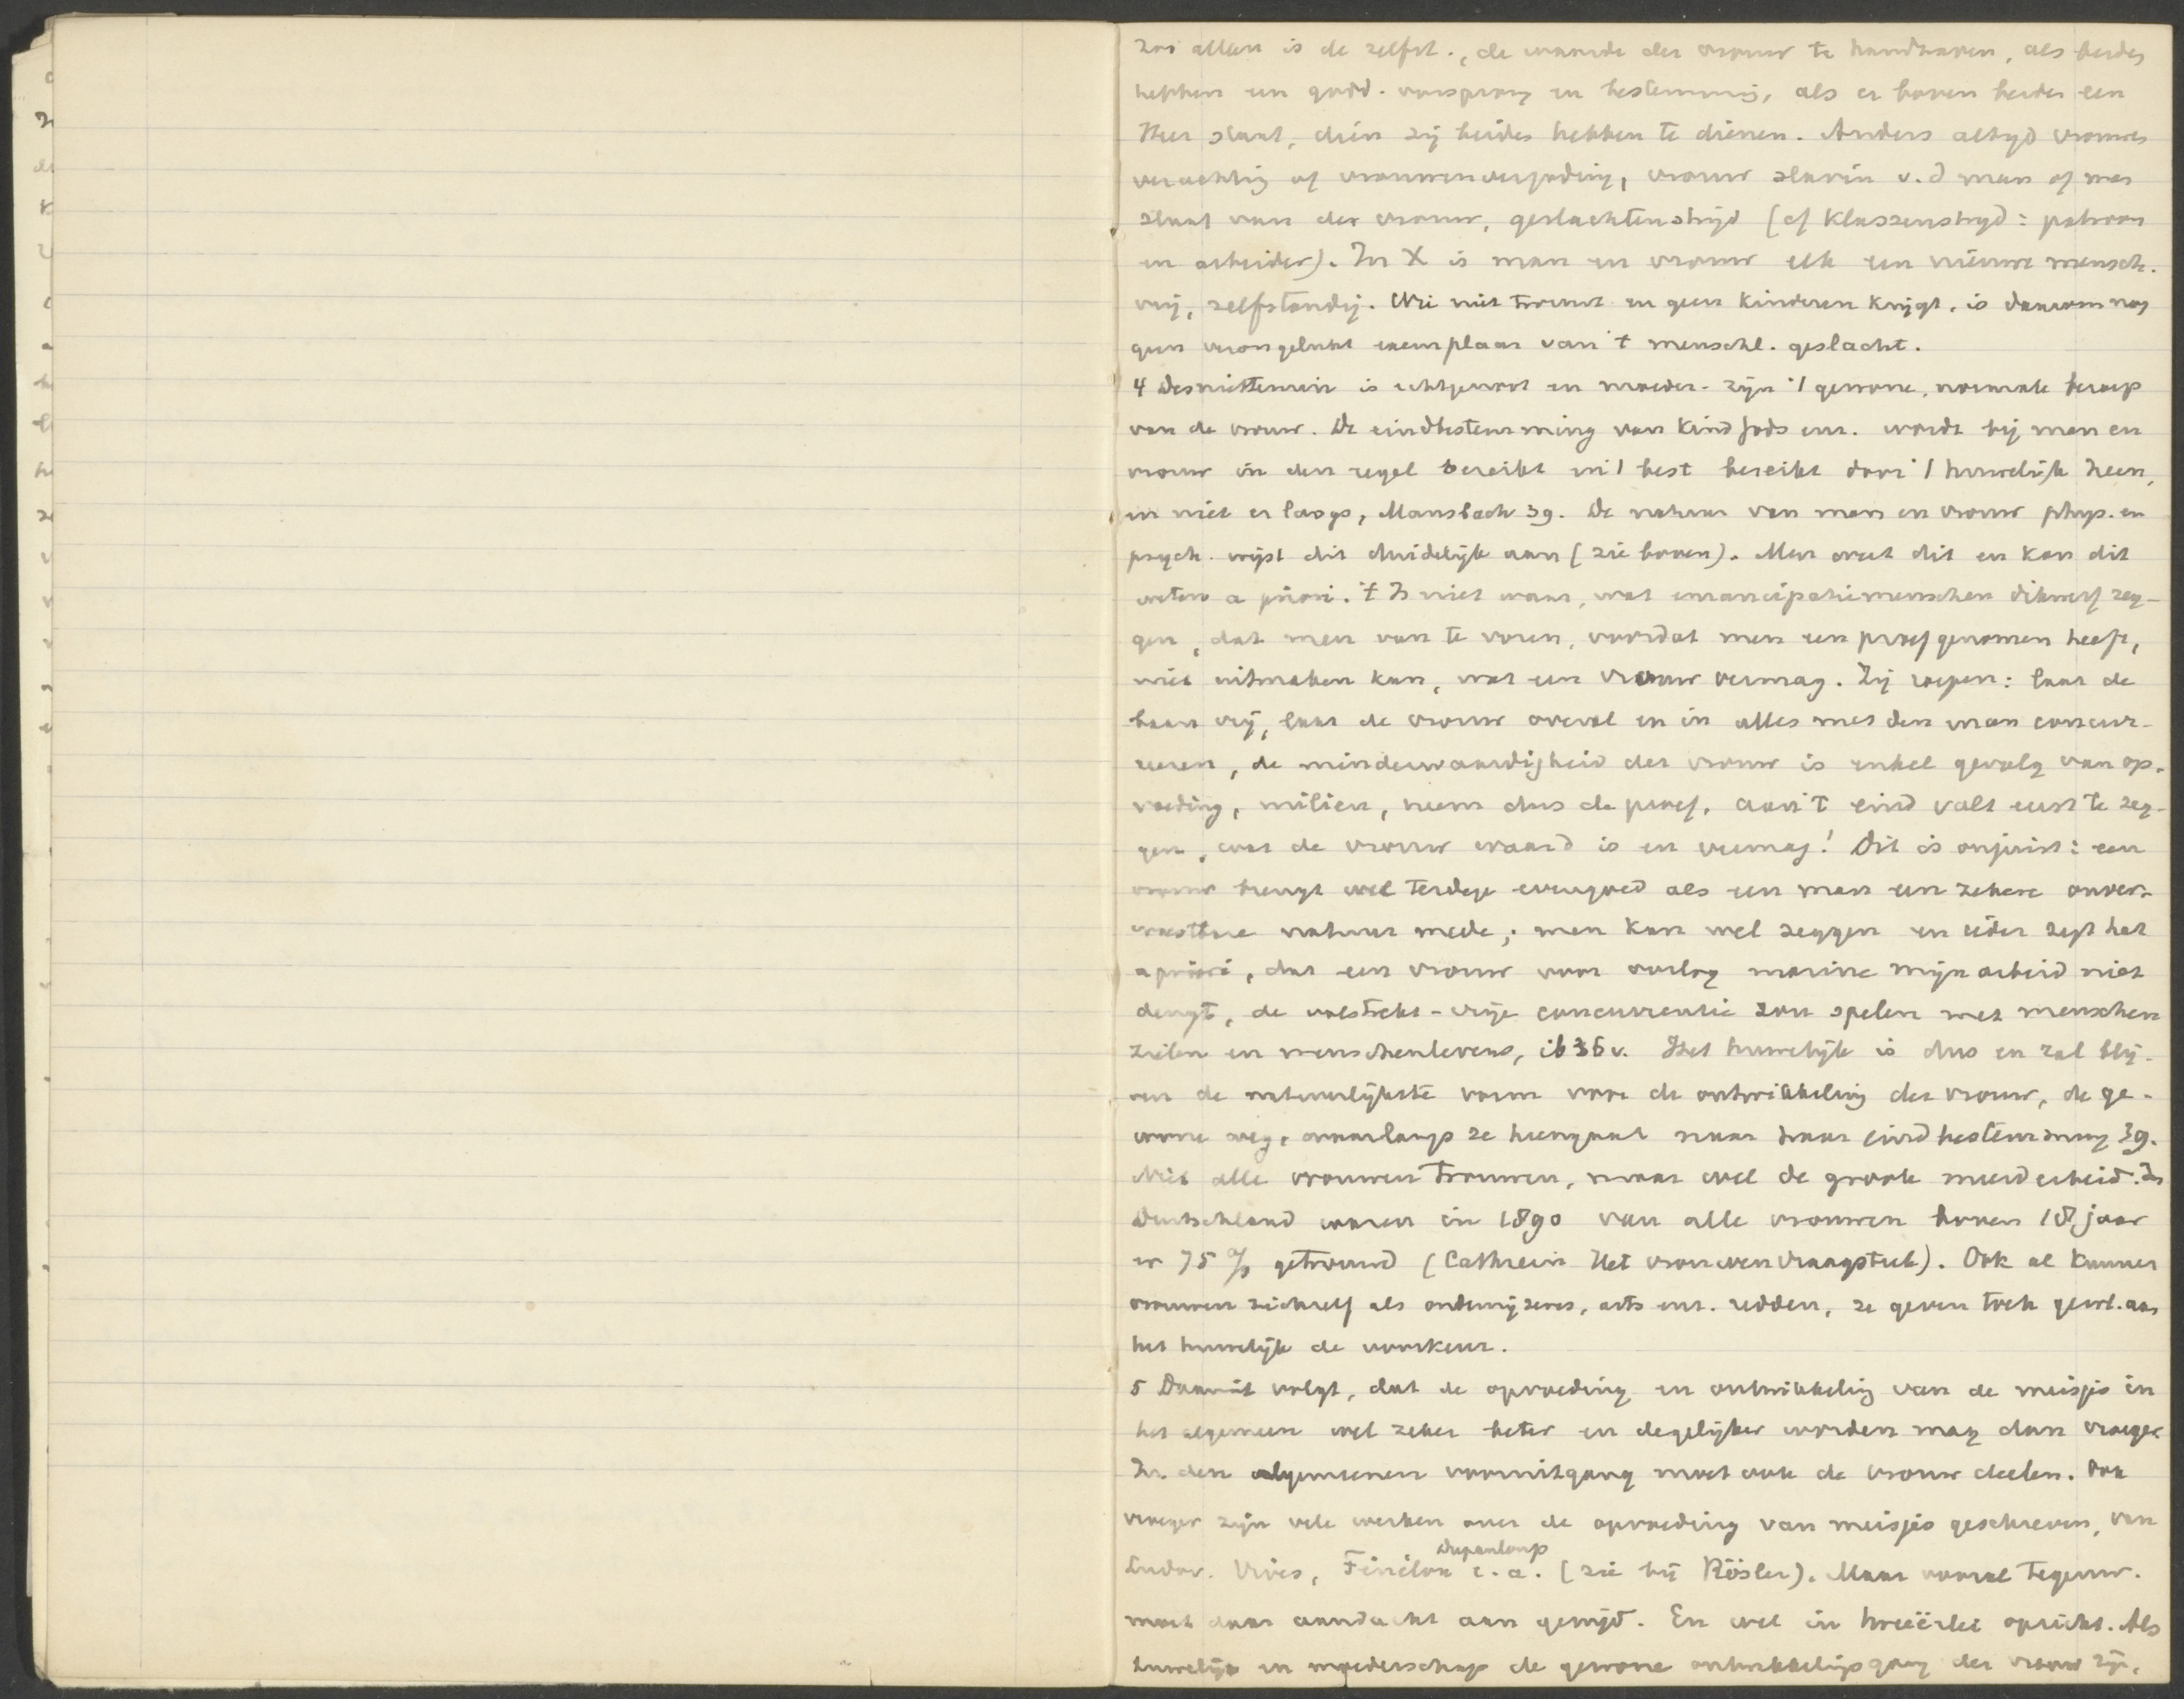 Zoo alleen is de zelfst., de waarde der vrouw te handhaven, als beides
hebben een godd. oorsprong en bestemming, als er boven beiden een
Heer staat, dien zij beides hebben te dienen. Anders altyd vrouwen
verachting of vrouwenvergoding, vrouw slavin v.d man of man
slaaf van der vrouw, geslachtenstrijd (cf Klassenstryd: patroon
en arbeider). In X is man en vrouw elk een nieuwe mensch.
vrij, zelfstandig. Wie niet trouwt en geen kinderen krijgt, is daarom nog
geen verongelukt exemplaar van 't menschl. geslacht.
4 Desniettemin is echtgenoot en moeder-zijn 't gewone, normale beroep
van de vrouw. De eindbestemming van kind Gods enz. wordt bij man en
vrouw in den regel bereikt en 't best bereikt door 't huwelijk heen,
en niet er langs, Mausbach 39. De natuur van man en vrouw phys. en
psych. wijst dit duidelijk aan (zie boven). Men weet dit en kan dit
weten a priori. 't Is niet waar, wat emancipatiemenschen dikwerf zeg-
gen, dat men van te voren, voordat men een proef genomen heeft,
niet uitmaken kan, wat een vrouw vermag. Zij roepen: laat de
baan vrij, laat de vrouw overal en in alles met den man concur-
reeren, de minderwaardigheid der vrouw is enkel gevolg van op-
voeding, milieu, neem dus de proef, aan 't eind valt eerst te zeg-
gen, wat de vrouw waard is en vermag! Dit is onjuist: een
vrouw brengt wel terdege evengoed als een man een zekere onver-
woestbare natuur mede; men kan wel zeggen en ieder zegt het
a priori, dat een vrouw voor oorlog marine mijnarbeid niet
deugt, de volstrekt-vrije concurrentie zou spelen met menschen
zielen en menschenlevens, ib 36 v. Het huwelijk is dus en zal blij-
ven de natuurlijkste vorm voor de ontwikkeling der vrouw, de ge-
wone weg, waarlangs ze heengaat naar haar eindbestemming 39.
Niet alle vrouwen trouwen, maar wel de groote meerderheid. In
Duitschland waren in 1890 van alle vrouwen boven 18 jaar
er 75 % getrouwd (Cathrein Het vrouwenvraagstuk). Ook al kunnen
vrouwen zichzelf als onderwijzeres, arts enz. redden, ze geven toch gewl. aan
het huwelijk de voorkeur.
5 Daaruit volgt, dat de opvoeding en ontwikkeling van de meisjes in
het algemeen wel zeker beter en degelijker worden mag dan vroeger
In den algemeenen vooruitgang moet ook de vrouw deelen. Ook
vroeger zijn vele werken over de opvoeding van meisjes geschreven, van
Ludov. Vives, Fénélon Dupanloup e.a. (zie bij Rösler). Maar vooral tegenw.
moet daar aandacht aan gewijd. En wel in tweeërlei opzicht. Als
huwelijk en moederschap de gewone ontwikkelingsgang der vrouw zijn,